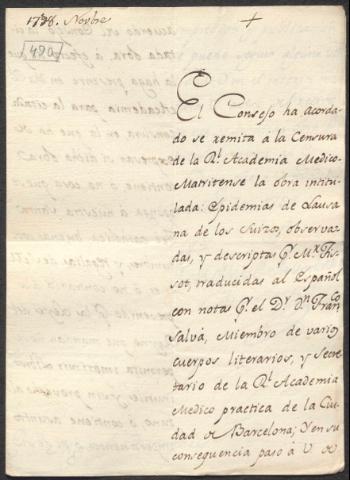 1798. Novbre +
480
El Consejo ha acorda-
do se remita á la Censura
de la Rl. Academia Medico-
Matritense la obra intitu-
lada: Epidemias de Lausa
na de los Suizos, observa-
das, y descriptas pr. Mr. Tis-
sot, traducidas al Español
con notas pr. el Dr. Dn. Franco
Salvá, Miembro de varios
cuerpos literarios, y Secre
tario de la Rl. Academia
Medico practica de la Ciu-
dad de Barcelona; Y en su
consequencia paso á V de